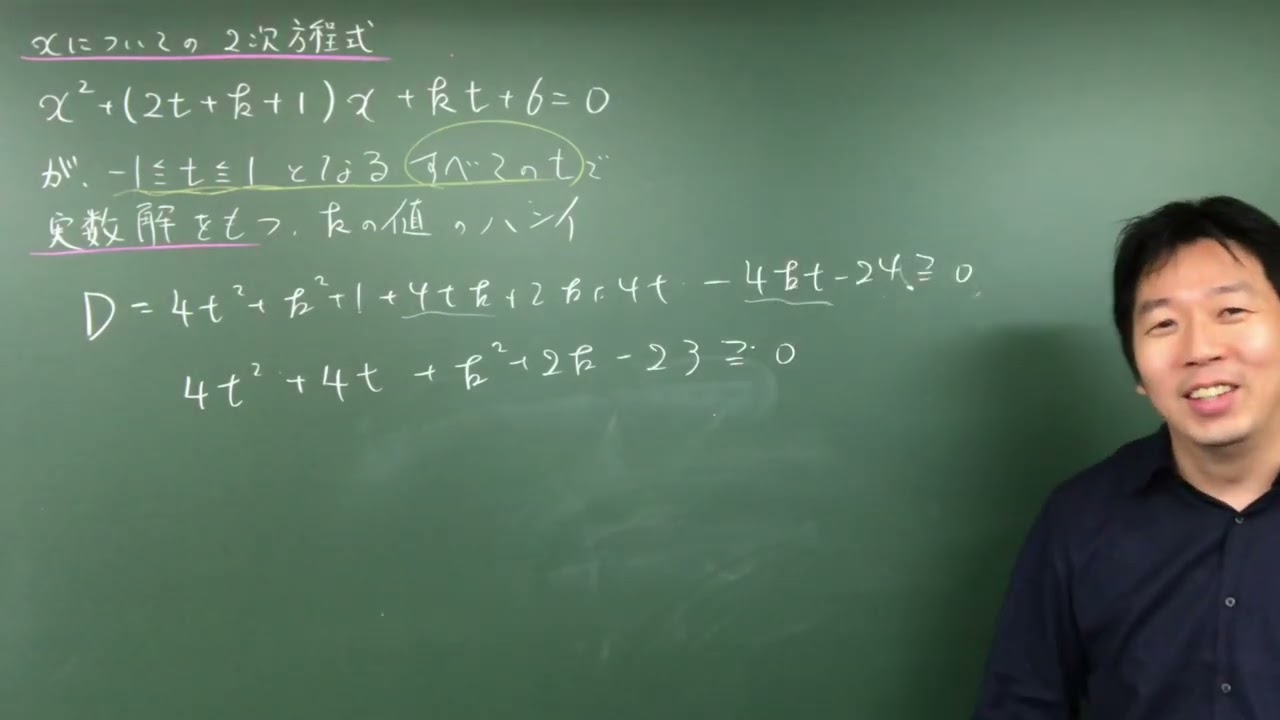 xについての2次方程式
x²+(2t+k+1)x+kt+6=0
が、-1≦t≦1となるすべてのtで
実数解をもつ、kの値のハンイ
D=4t²+k²+1+4tk+2k+4t-4kt-24≧0
4t²+4t+k²+2k-23≧0